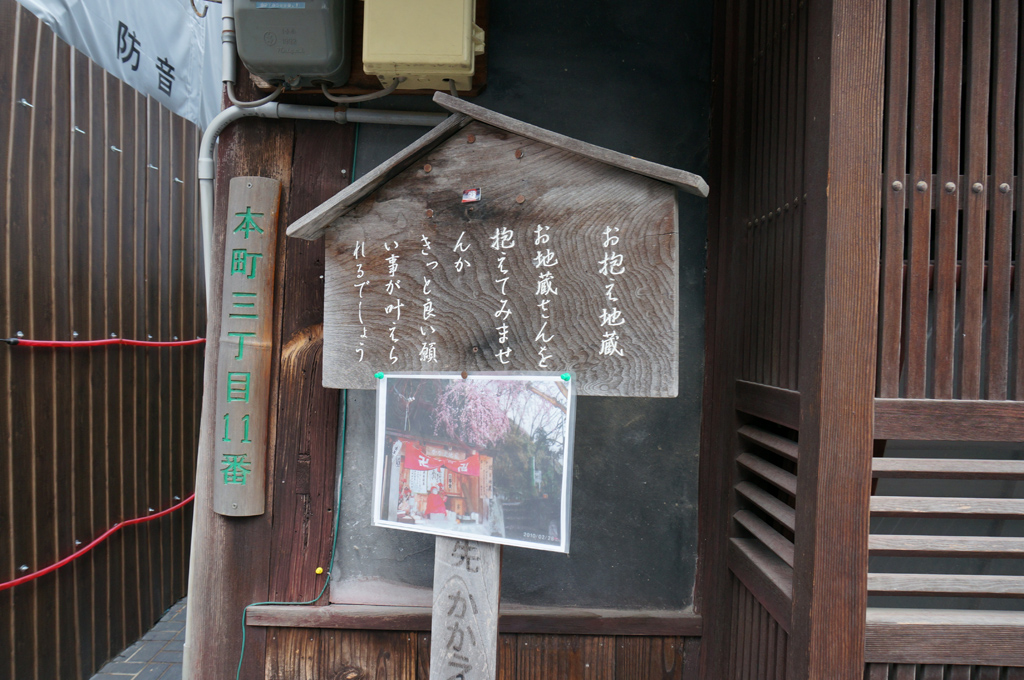 防音
本町三丁目11番
お抱え地蔵
お地蔵さんを
抱えてみませ
んか
きっと良い願
い事が叶えら
れるでしょう
先 かかえ